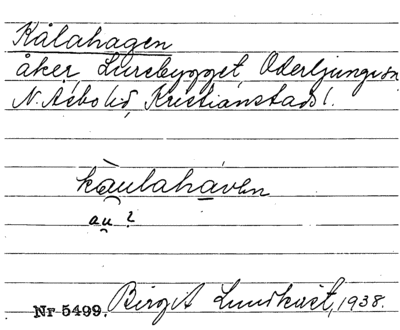 Kålahagen
åker, Lurebygget, Oderljunga sn
N. Åsbo hd, Kristianstads l.
kàulahàven
au ?
Nr 5499. Birgit Lundkvist, 1938.